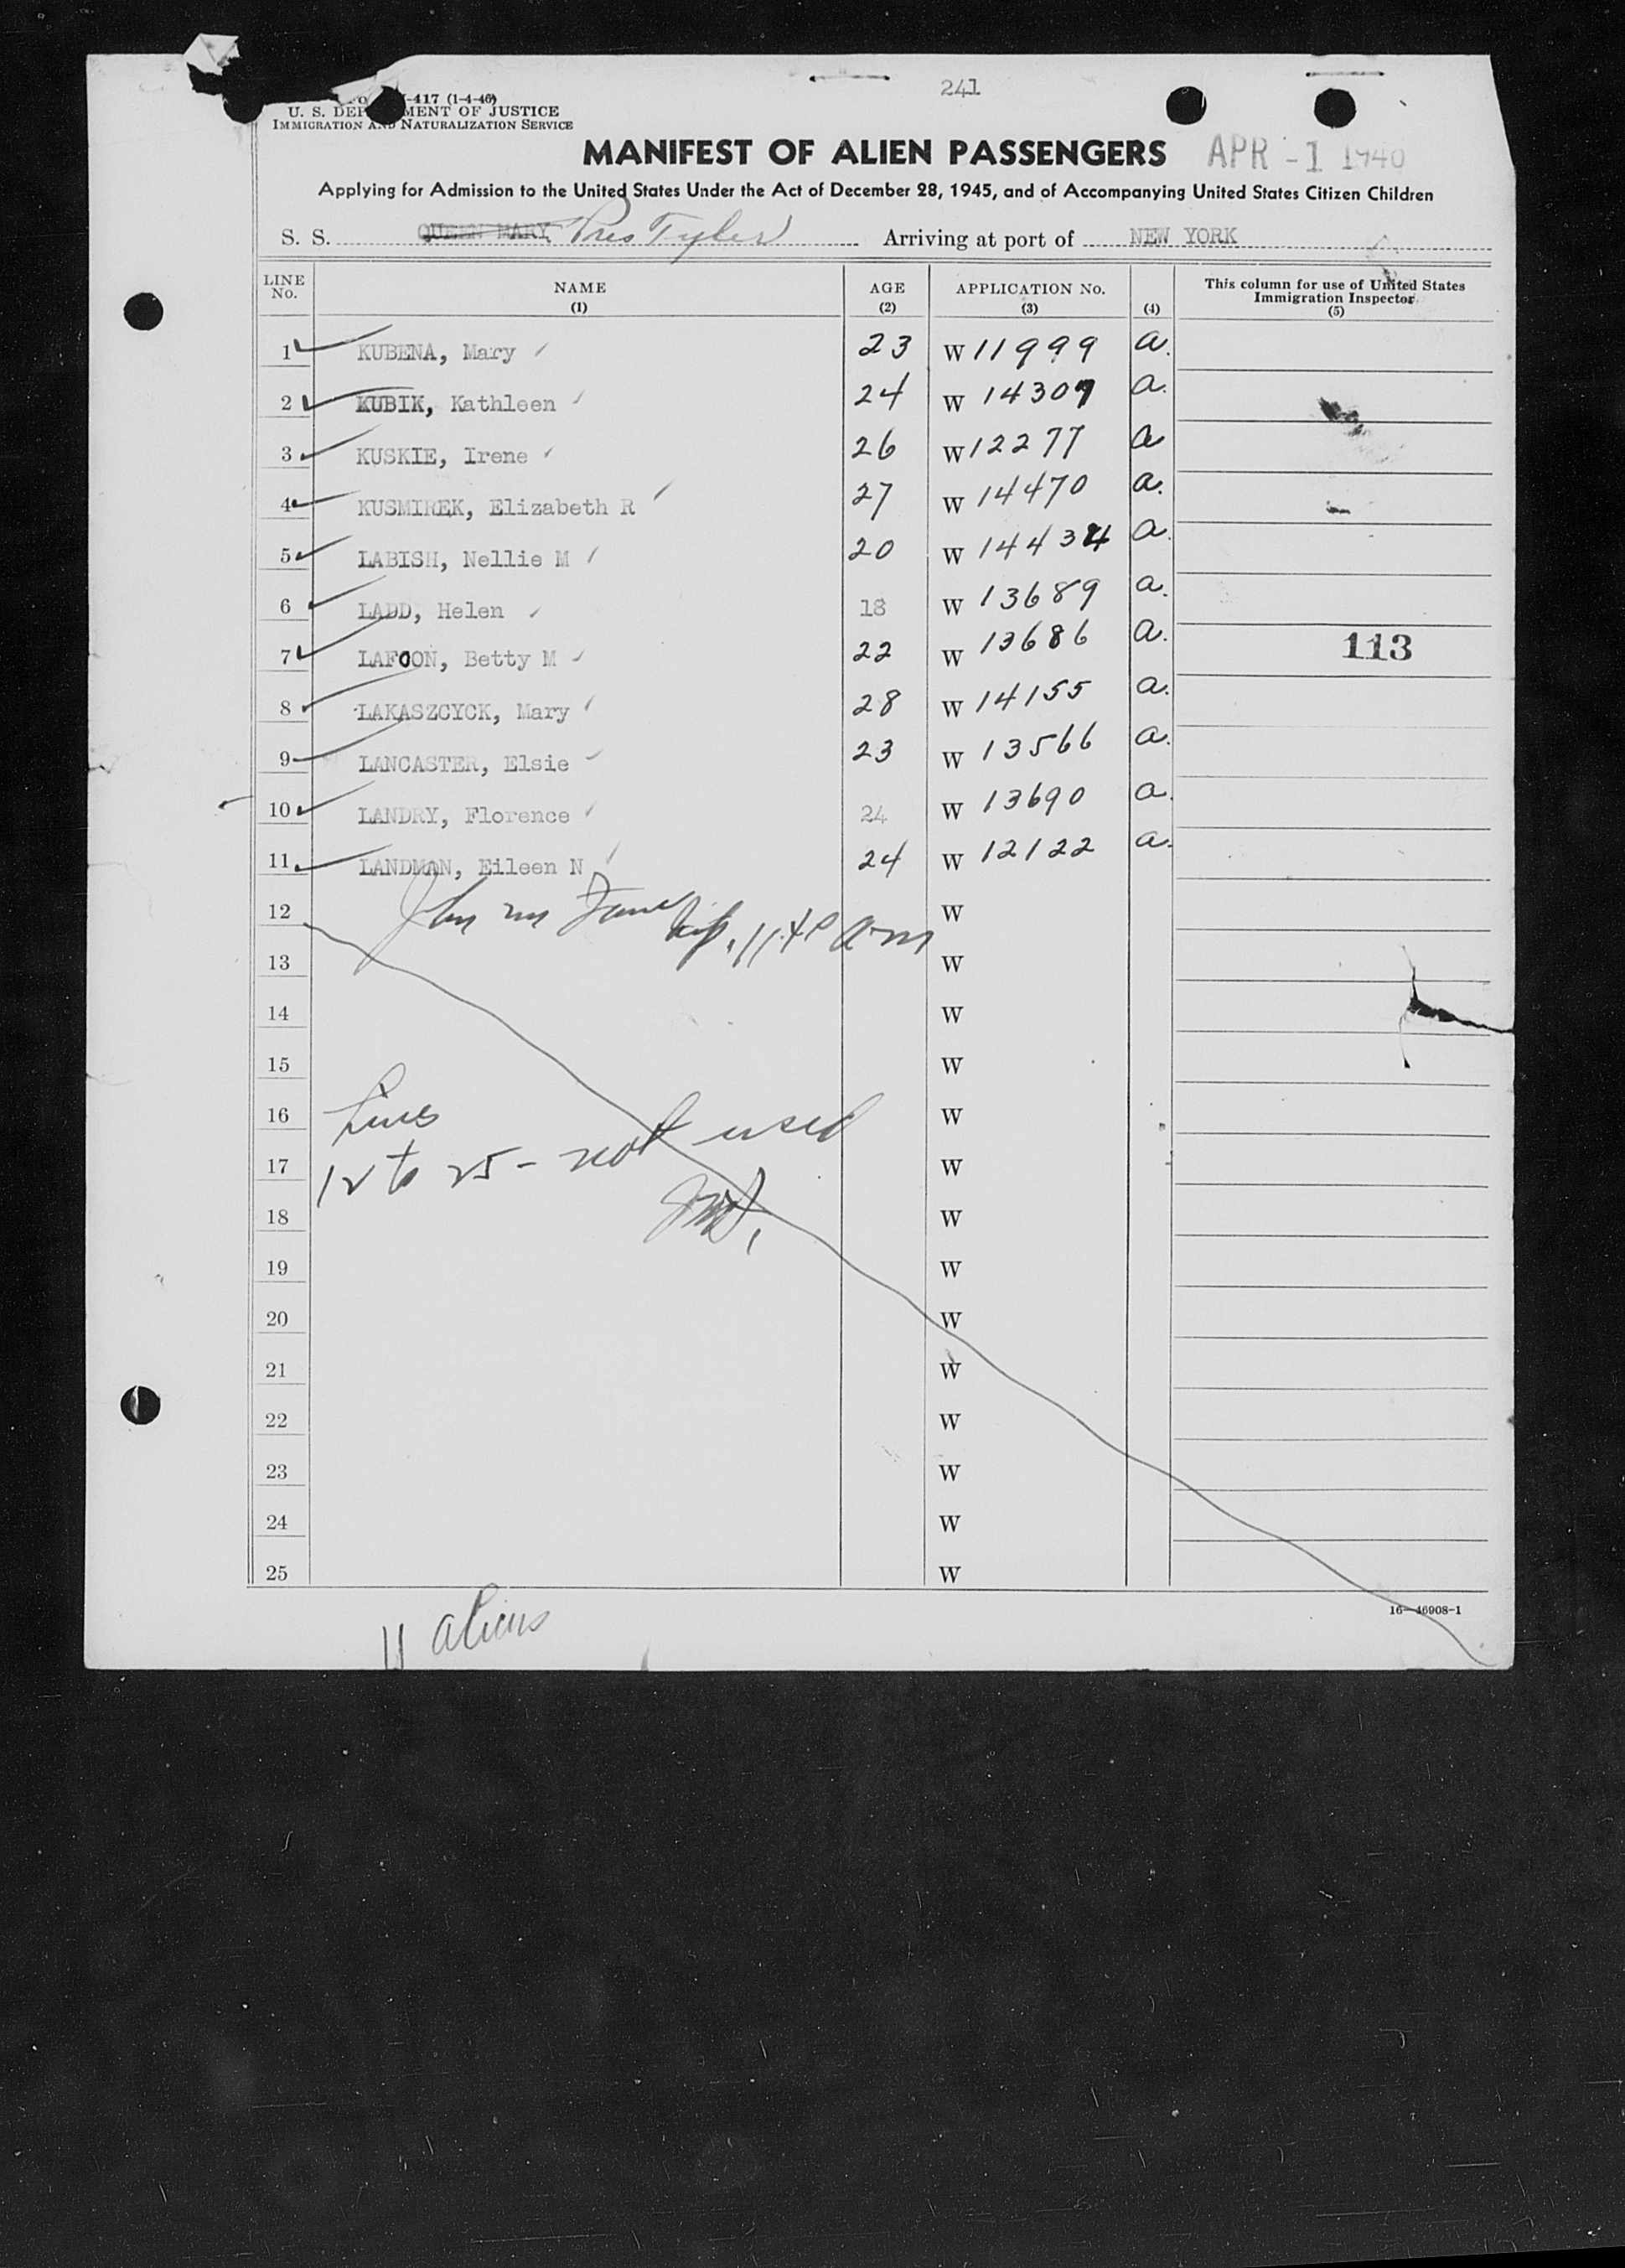 241
-417 (1-4-46)
U. S. DEP MENT OF JUSTICE
IMMIGRATION AND NATURALIZATION SERVICE
MANIFEST OF ALIEN PASSENGERS APR -1 1946
Applying for Admission to the United States Under the Act of December 28, 1945, and of Accompanying United States Citizen Children
S. S. QUEEN MARY Pres Tyler Arriving at port of NEW YORK
LINE No. NAME (1) AGE (2) APPLICATION No. (3) (4) This column for use of United States Immigration Inspector (5)
1 KUBENA, Mary 23 W 11999 a.
2 KUBIK, Kathleen 24 W 14307 a.
3 KUSKIE, Irene 26 W 12277 a
4 KUSMIREK, Elizabeth R 27 W 14470 a.
5 LABISH, Nellie M 20 W 14434 a.
6 LADD, Helen 18 W 13689 a.
7 LAFOON, Betty M 22 W 13686 a. 113
8 LAKASZCYCK, Mary 28 W 14155 a.
9 LANCASTER, Elsie 23 W 13566 a.
10 LANDRY, Florence 24 W 13690 a.
11 LANDMAN, Eileen N 24 W 12122 a.
12 John Insp. 11.40 am W
13 W
14 W
15 W
16 Lines W
17 12 to 25 - not used W
18 W
19 W
20 W
21 W
22 W
23 W
24 W
25 W
16—46908-1
11 aliens